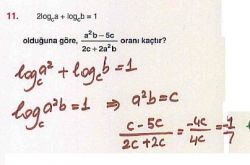 11. 2log꜀a + log꜀b = 1
olduğuna göre, (a²b – 5c)/(2c + 2a²b) oranı kaçtır?
log꜀a² + log꜀b = 1
log꜀a²b = 1 ⇒ a²b = c
(c – 5c)/(2c + 2c) = –4c/4c = –1